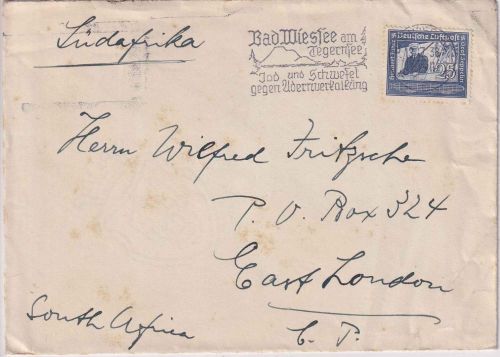 Südafrika
Bad Wiessee am
Tegernsee
Jod und Schwefel
gegen Adernverkalkung
Deutsche Luftpost
25
Herrn Wilfred Fritzsche
P. O. Box 324
East London
C. P.
South Africa